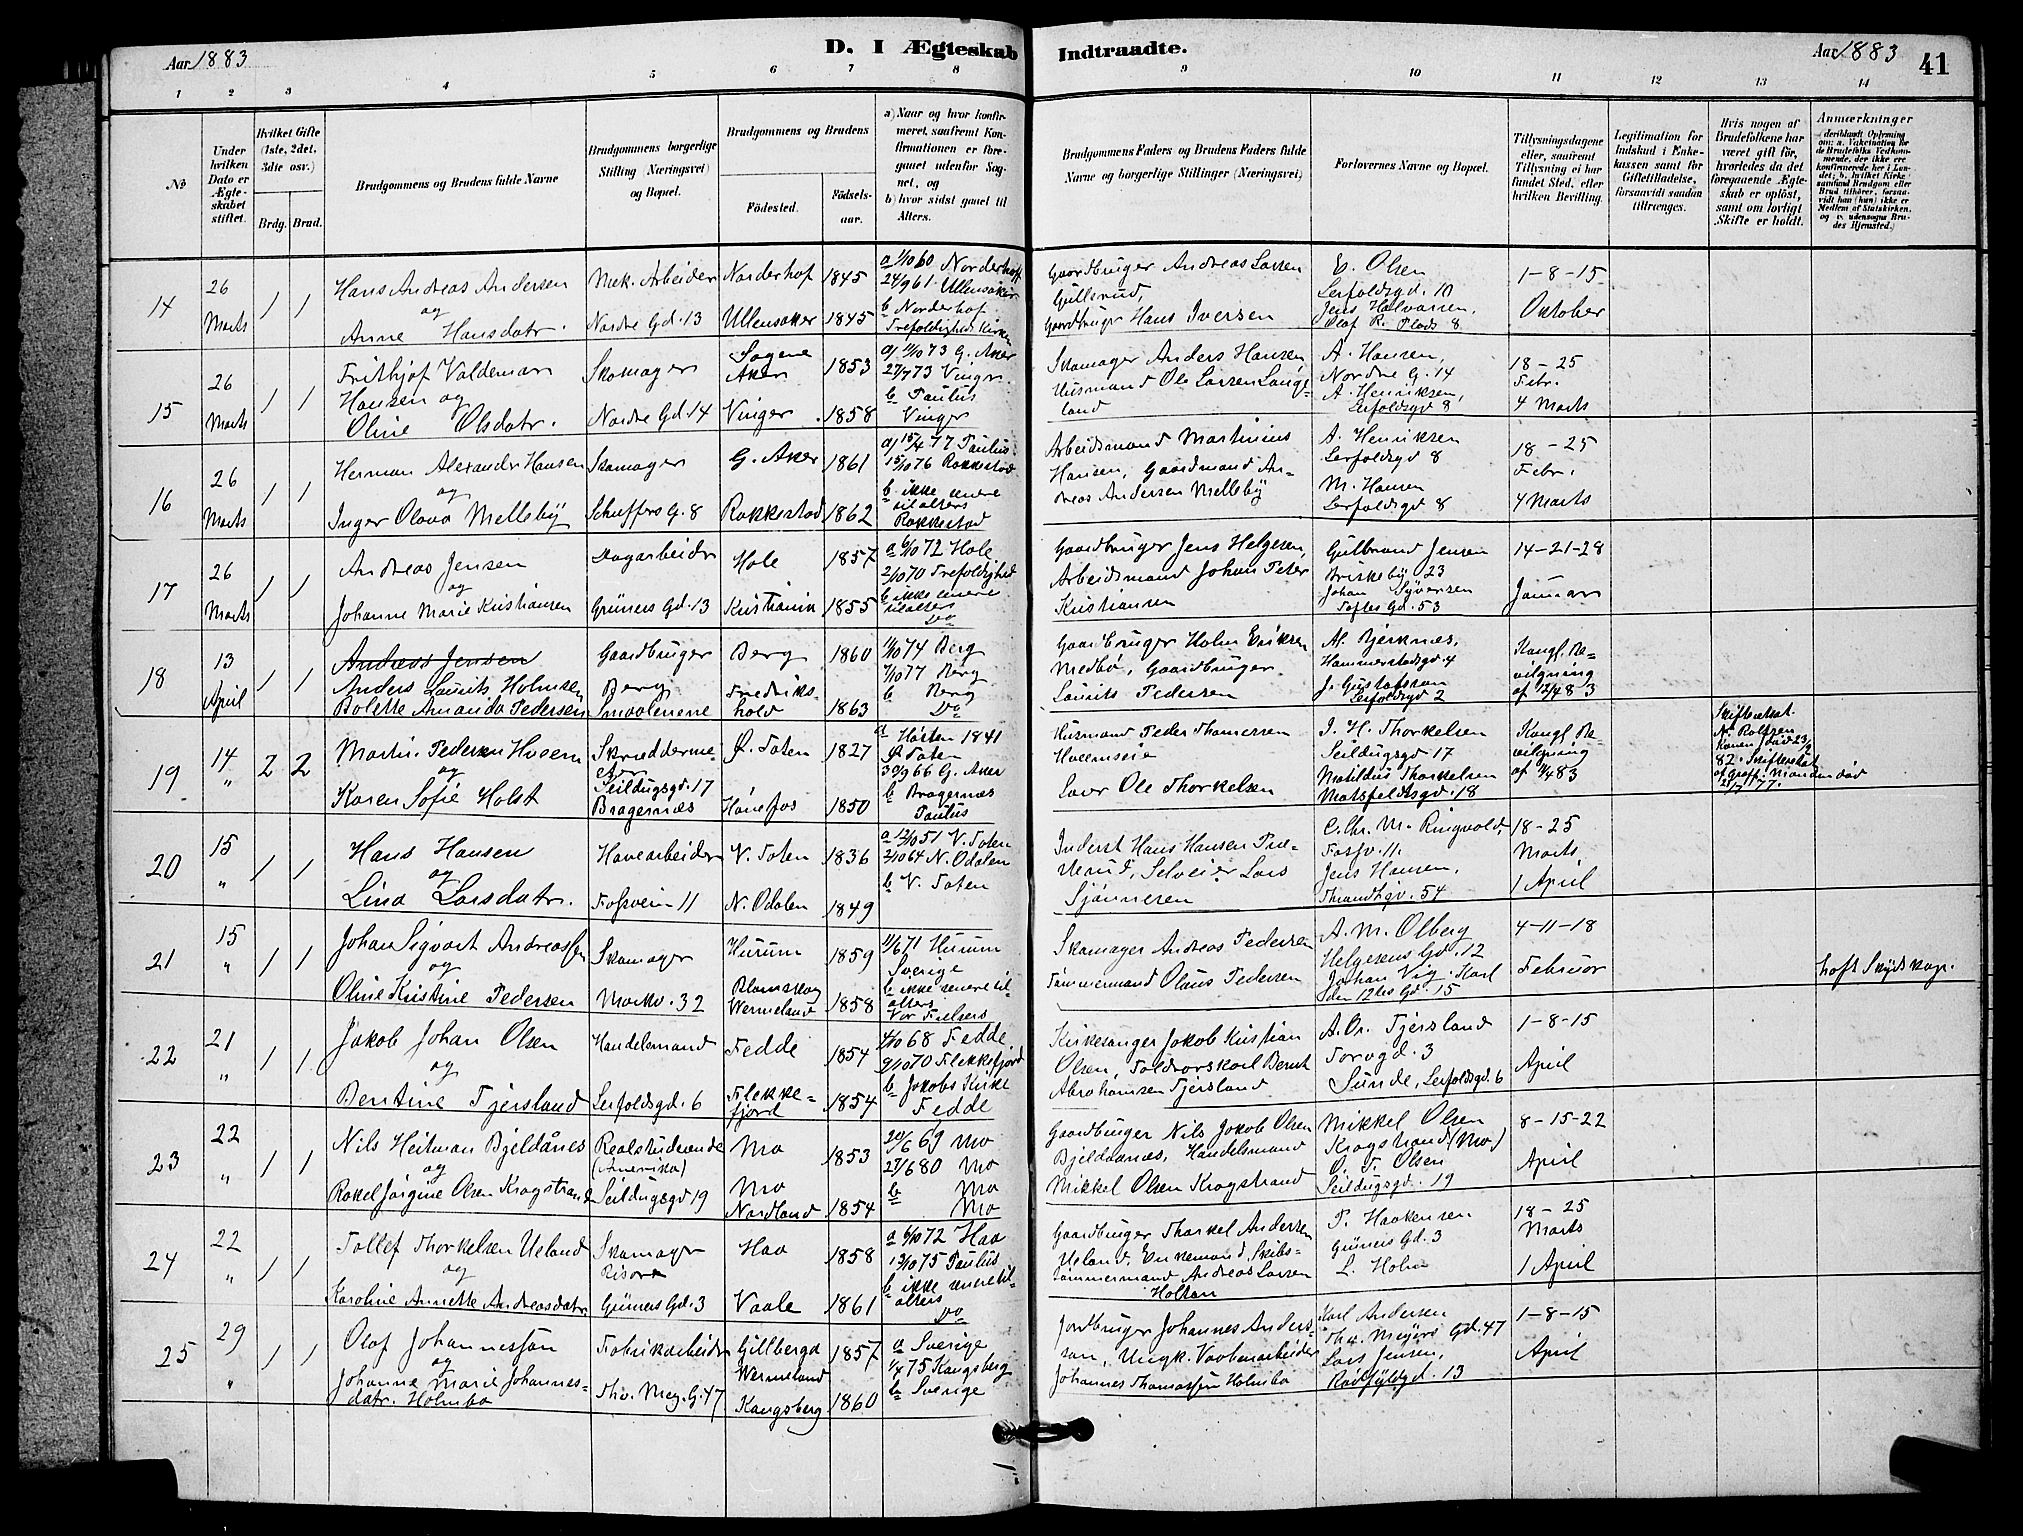 Aar 1883
D. I Ægteskab Indtraadte.
Aar 1883
41
1 2 3 4 5 6 7 8 9 10 11 12 13 14
No
Under hvilken Dato er Ægteskabet stiftet.
Hvilket Gifte (1ste, 2det, 3dte osv.)
Brdg. Brud.
Brudgommens og Brudens fulde Navne
Brudgommens borgerlige Stilling (Næringsvei) og Bopæl.
Brudgommens og Brudens
Födested.
Födselsaar.
a) Naar og hvor konfirmeret, saafremt Konfirmationen er foregaaet udenfor Sognet, og
b) hvor sidst gaaet til Alters.
Brudgommens Faders og Brudens Faders fulde Navne og borgerlige Stillinger (Næringsvei)
Forlovernes Navne og Bopæl.
Tillysningsdagene eller, saafremt Tillysning ei har fundet Sted, efter hvilken Bevilling.
Legitimation for Indskud i Enkekassen samt for Giftetilladelse, forsaavidt saadan tiltrænges.
Hvis nogen af Brudefolkene har været gift för, hvorledes da det foregaaende Ægteskab er oplöst, samt om lovligt Skifte er holdt.
Anmærkninger
14
26 Marts
1 1
Hans Andreas Andersen
og
Anne Hansdatr.
Mek. Arbeider
Nordre Gd. 13
Norderhof 1845
Ullensaker 1845
a 1/10 60 Norderhoff
24/9 61 Ullensaker
b Norderhof
Trefoldigheds Kirken
Gaardbruger Andreas Larsen
Gullerud,
Gaardbruger Hans Iversen
E. Olsen
Lerfoldsgd. 10
Jens Halvorsen,
Olaf R. Plads 8
1-8-15
Oktober
15
26 Marts
1 1
Frithjof Valdemar
Hansen og
Oline Olsdatr.
Skomager
Nordre Gd. 14
Sagene
Aker 1853
Vinger 1858
G. Aker
Vinger
b Paulus
Vinger
Skomager Anders Hansen
Husmand Ole Larsen Langeland
A. Hansen,
Nordre G. 14
A. Henriksen,
Lerfoldsgd 8
18-25
Febr.
4 Marts
16
26 Marts
1 1
Herman Alexander Hansen
og
Inger Olava Melleby
Skomager
Schuffers G. 8
G. Aker 1861
Rakkestad 1862
a) 15/4 77 Paulus
15/10 76 Rakkestad
b ikke senere
til alters
Rakkestad
Arbeidsmand Martinius
Hansen, Gaardmand Andreas Andersen Melleby
A. Henriksen
Lerfoldsgd 8
M. Hansen
Lerfoldsgd 8
18-25
Febr.
4 Marts
17
26 Marts
1 1
Andreas Jensen
og
Johanne Marie Kristiansen
Dagarbeidr
Grüners Gd. 13
Hole 1857
Kristiania 1855
a 6/10 72 Hole
2/10 70 Trefoldighed
b ikke senere
til alters
Do
Gaardbruger Jens Helgesen,
Arbeidsmand Johan Peter
Kristiansen
Gulbrand Jensen
Briskeby 23
Johan Syversen
Toftes Gd. 53
14-21-28
Januar
18
13 April
1 1
Andreas Jensen
Anders Laurits Holmsen
Bolette Amanda Pedersen
Gaardbruger
Berg
Smaalenene
Berg 1860
Fredrikshald 1863
1/10 74 Berg
7/10 77 Berg
b Berg
Do
Gaardbruger Holm Eriksen
Medbø, Gaardbruger
Laurits Pedersen
N. Bjerknæs,
Hammerstadsgd. 4
J. Gustafsson
Lerfoldsgd 2
Kongl. Bevilgning
af 12/4 83
19
14 "
2 2
Martin Pedersen Hveem
og
Karen Sofie Holst
Skræddermester
Seildugsgd. 17
Bragernæs
Ø. Toten 1827
Hönefos 1850
a Høsten 1841
Ø Toten
30/9 66 G. Aker
b Bragernæs
Paulus
Husmand Peder Thomessen
Hveemseie
Lavr Ole Thorkelsen
I. H. Thorkelsen
Seildugsgd 17
Matildus Thorkelsen
Motzfeldtsgd. 18
Kongl. Bevilgning
af 11/4 83
Skifteattest
N. Rolfsen
Konen död 23/2
82. Skifteattest
Manden död
77.
20
15 "
1 1
Hans Hansen
og
Lina Larsdatr.
Havearbeider
Fossvein 11
V. Toten 1836
N. Odalen 1849
a 12/10 51 V. Toten
2/10 64 N. Odalen
b V. Toten
Inderst Hans Hansen
Selveier Lars
Sjønnesen
C. Chr. M. Ringvold,
Fossv. 11.
Jens Hansen,
Trondhjv. 54
18-25
Marts
1 April
21
15 "
1 1
Johan Sigvart Andreassen
og
Oline Kristine Pedersen
Skomager
Markv. 32
Hurum 1859
Blomskog
Wermeland 1858
11/6 71 Hurum
Sverige
b ikke senere til
alters
Vor Frelsers
Skomager Andreas Pedersen
Tømmermand Olaus Pedersen
A. M. Olberg
Helgesens Gd. 12
Johan Vig. Karl
den 12tes Gd. 15
4-11-18
Februar
haft Skydskagr.
22
21 "
1 1
Jakob Johan Olsen
og
Bentine Tjersland
Handelsmand
Lerfoldsgd. 6
Fedde 1854
Flekkefjord 1854
4/10 68 Fedde
9/10 70 Flekkefjord
b Jakobs Kirke
Fedde
Kirkesanger Jakob Kristian
Olsen, Toldvorskarl Bernt
Abrahamsen Tjersland
A. Or. Tjersland
Torvgd. 3
Sunde, Lerfoldsgd. 6
1-8-15
April
23
22 "
1 1
Nils Heitman Bjeldånes
og
Rakel Jörgine Olsen Krogstrand
Realstuderende
(Amerika)
Seildugsgd 19
Mo 1853
Mo
Nordland 1854
20/6 69 Mo
27/6 80 Mo
b Mo
Mo
Gaardbruger Nils Jakob Olsen
Bjeldaanes, Handelsmand
Mikkel Olsen Krogstrand
Mikkel Olsen
Krogstrand (Mo)
O. T. Olsen
Seildugsgd. 19
8-15-22
April
24
22 "
1 1
Tollef Thorkelsen Ueland
og
Karoline Annette Andreasdatr.
Skomager
Risør
Grüners Gd. 3
Haa 1858
Vaale 1861
a 6/10 72 Haa
13/10 75 Paulus
b ikke senere til
alters
Do
Gaardbruger Thorkel Andersen
Ueland, Enkemand, Skibstømmermand Andreas Larsen
Holtan
T. Haakensen
Grüners Gd. 3
L. Holm
18-25
Marts
1 April
25
29 "
1 1
Olaf Johannesson
og
Johanne Marie Johannesdatr. Holmbo
Fabrikarbeider
Thv. Mey. G. 47
Gillberga
Wermeland 1857
Kongsberg 1860
a Sverige
1/4 75 Kongsberg
b Sverige
Jordbruger Johannes Andersson, Ungk. Vaabenarbeider
Johannes Thomassen Holmbo
Karl Andersen
Thv. Meyers Gd. 47
Lars Jensen,
Rödfyldgd. 13
1-8-15
April